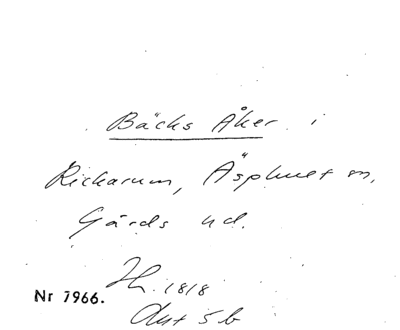 Bäcks Åker i
Rickarum, Äsphult sn,
Gärds hd.
Th. 1818
Akt 5 b
Nr 7966.